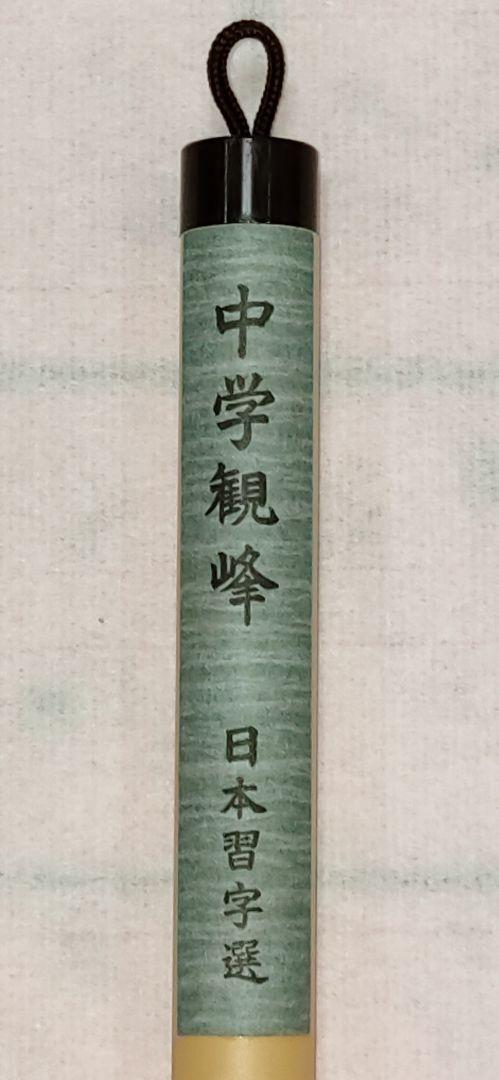 中学観峰
日本習字選